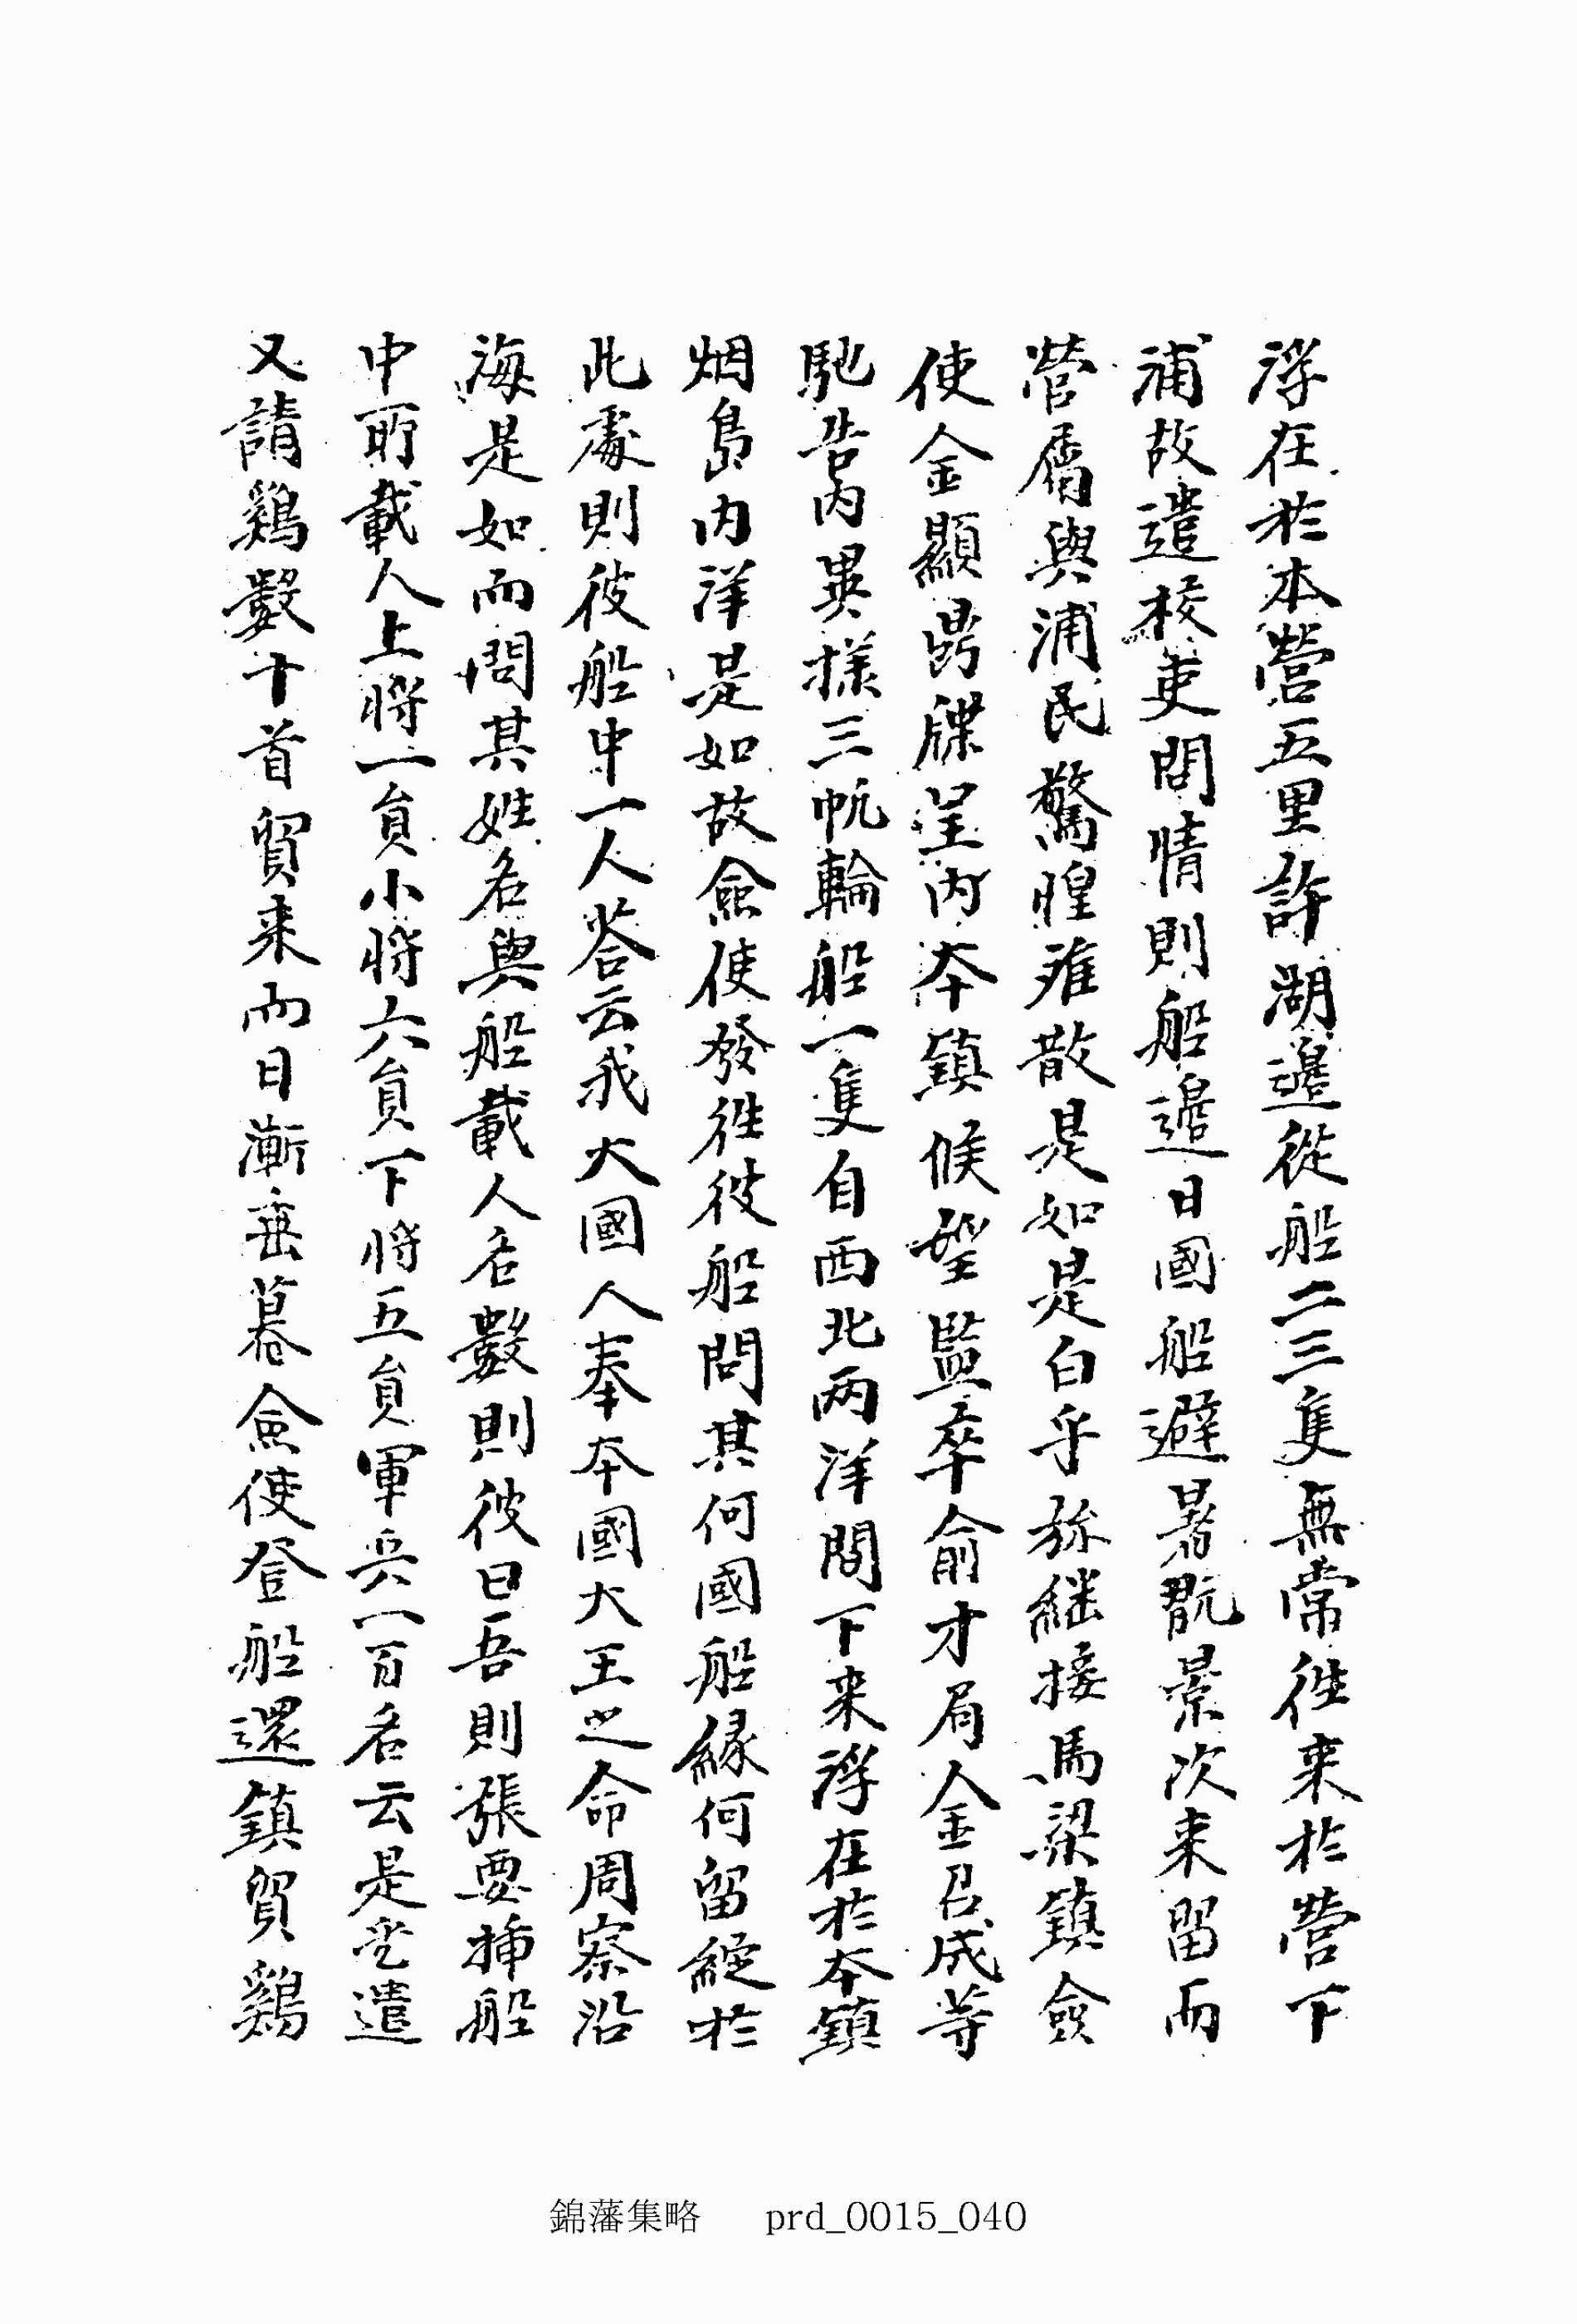 浮在於本營五里許湖邊從船二三隻無常徃来於營下
浦故遣校吏問情則船邊日國船避暑翫景次来留而
營屬與浦民驚惶難散是如是白乎旀継接馬梁鎮僉
使金顯昺牒呈內本鎮候望監卒俞才局金召成等
馳告內異樣三帆輪船一隻自西北両洋間下来浮在於本鎮
烟島內洋是如故僉使發徃彼船問其何國船緣何留綻於
此處則彼船中一人荅云我大國人奉本國大王之命周察沿
海是如而問其姓名與船載人名數則彼曰吾則張要揷船
中所載人上將一負小將六負下將五負軍兵一百名云是乎遣
又請鷄數十首貿来而日漸垂暮僉使登船還鎮貿鷄
錦藩集略 prd_0015_040